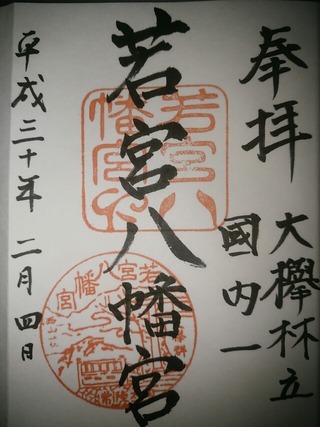 奉拝
大欅林立
國内一
若宮八幡宮
平成三十年 二月四日
若宮八幡宮
若宮八幡宮